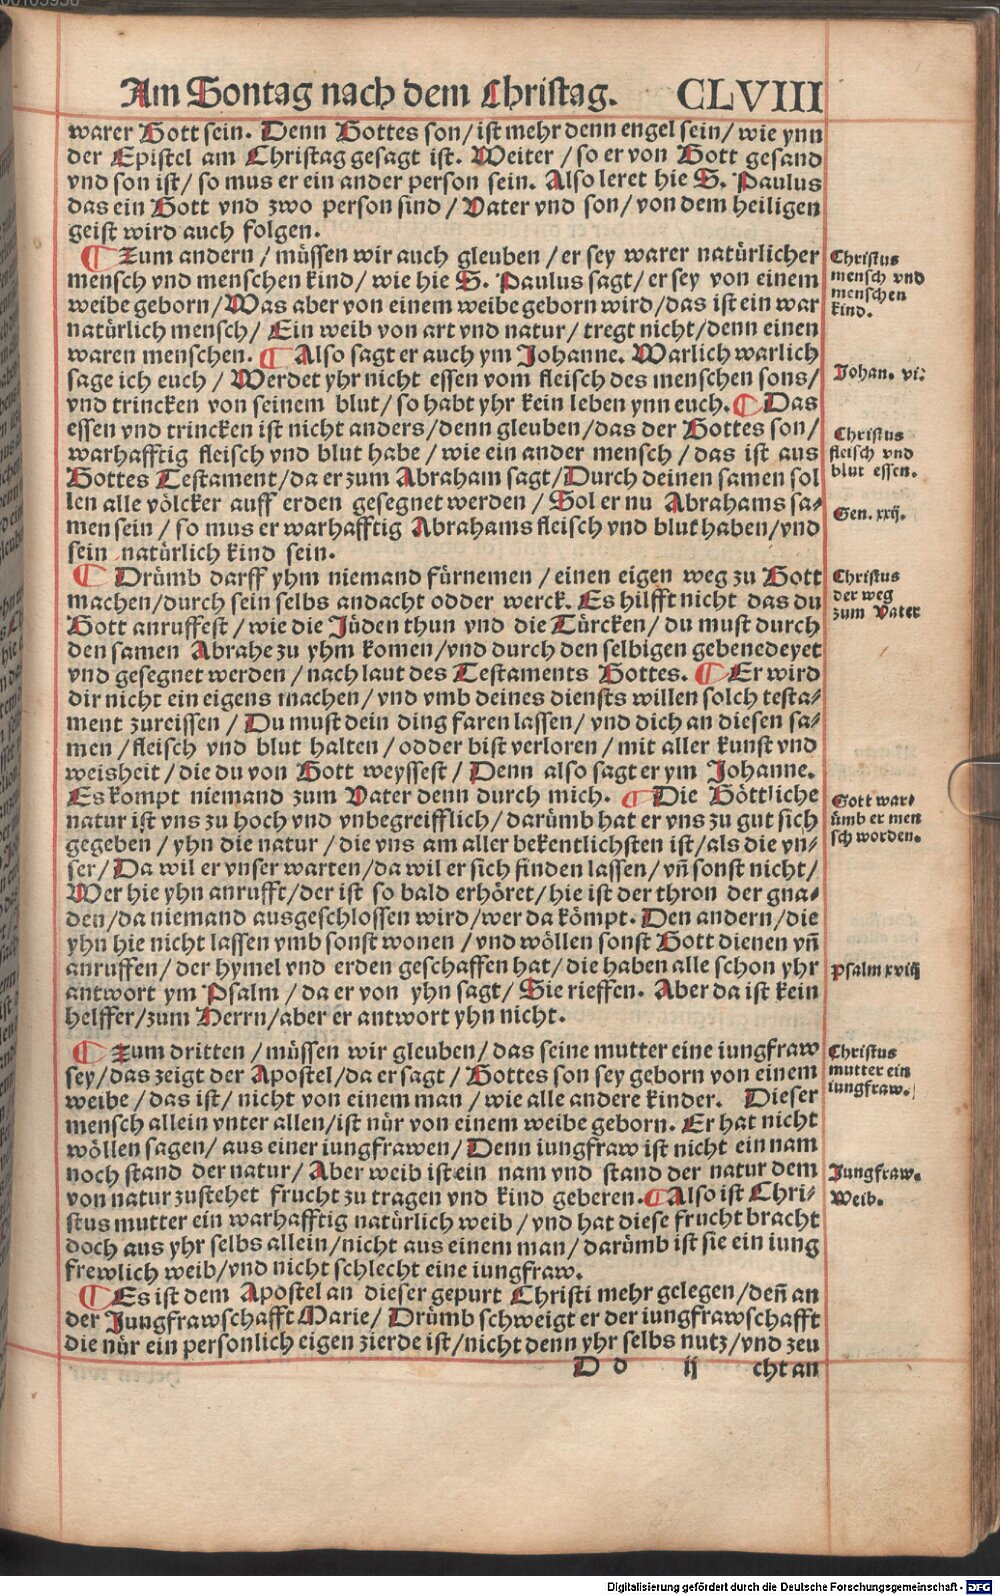 Am Sontag nach dem Christag. CLVIII
warer Gott sein. Denn Gottes son/ ist mehr denn engel sein/ wie ynn
der Epistel am Christag gesagt ist. Weiter / so er von Gott gesand
vnd son ist/ so mus er ein ander person sein. Also leret hie S. Paulus
das ein Gott vnd zwo person sind / Vater vnd son/ von dem heiligen
geist wird auch folgen.
¶ Zum andern / müssen wir auch gleuben / er sey warer natürlicher
mensch vnd menschen kind / wie hie S. Paulus sagt / er sey von einem
weibe geborn / Was aber von einem weibe geborn wird / das ist ein war
natürlich mensch / Ein weib von art vnd natur / tregt nicht / denn einen
waren menschen. ¶ Also sagt er auch ym Johanne. Warlich warlich
sage ich euch / Werdet yhr nicht essen vom fleisch des menschen sons/
vnd trincken von seinem blut / so habt yhr kein leben ynn euch. ¶ Das
essen vnd trincken ist nicht anders / denn gleuben / das der Gottes son/
warhafftig fleisch vnd blut habe / wie ein ander mensch / das ist aus
Gottes Testament / da er zum Abraham sagt / Durch deinen samen sol
len alle völcker auff erden gesegnet werden / Sol er nu Abrahams sa-
men sein / so mus er warhafftig Abrahams fleisch vnd blut haben / vnd
sein natürlich kind sein.
¶ Drümb darff yhm niemand fürnemen / einen eigen weg zu Gott
machen / durch sein selbs andacht odder werck. Es hilfft nicht das du
Gott anruffest / wie die Jüden thun vnd die Türcken / du must durch
den samen Abrahe zu yhm komen / vnd durch den selbigen gebenedeyet
vnd gesegnet werden / nach laut des Testaments Gottes. ¶ Er wird
dir nicht ein eigens machen / vnd vmb deines diensts willen solch testa-
ment zureissen / Du must dein ding faren lassen / vnd dich an diesen sa-
men / fleisch vnd blut halten / odder bist verloren / mit aller kunst vnd
weisheit / die du von Gott weyssest / Denn also sagt er ym Johanne.
Es kompt niemand zum Vater denn durch mich. ¶ Die Göttliche
natur ist vns zu hoch vnd vnbegreifflich / darümb hat er vns zu gut sich
gegeben / yhn die natur / die vns am aller bekentlichsten ist / als die vn-
ser / Da wil er vnser warten / da wil er sich finden lassen / vñ sonst nicht/
Wer hie yhn anrufft / der ist so bald erhöret / hie ist der thron der gna-
den / da niemand ausgeschlossen wird / wer da kömpt. Den andern / die
yhn hie nicht lassen vmb sonst wonen / vnd wöllen sonst Gott dienen vñ
anruffen / der hymel vnd erden geschaffen hat / die haben alle schon yhr
antwort ym Psalm / da er von yhn sagt / Sie rieffen. Aber da ist kein
helffer / zum Herrn / aber er antwort yhn nicht.
¶ Zum dritten / müssen wir gleuben / das seine mutter eine iungfraw
sey / das zeigt der Apostel / da er sagt / Gottes son sey geborn von einem
weibe / das ist / nicht von einem man / wie alle andere kinder. Dieser
mensch allein vnter allen / ist nür von einem weibe geborn. Er hat nicht
wöllen sagen / aus einer iungfrawen / Denn iungfraw ist nicht ein nam
noch stand der natur / Aber weib ist ein nam vnd stand der natur dem
von natur zustehet frucht zu tragen vnd kind geberen. ¶ Also ist Chri-
stus mutter ein warhafftig natürlich weib / vnd hat diese frucht bracht
doch aus yhr selbs allein / nicht aus einem man / darümb ist sie ein iung
frewlich weib / vnd nicht schlecht eine iungfraw.
¶ Es ist dem Apostel an dieser gepurt Christi mehr gelegen / deñ an
der Jungfrawschafft Marie / Drümb schweigt er der iungfrawschafft
die nür ein personlich eigen zierde ist / nicht denn yhr selbs nutz / vnd zeu
D d ij cht an
Christus
mensch vnd
menschen
kind.
Johan. vi.
Christus
fleisch vnd
blut essen.
Gen. xxij.
Christus
der weg
zum Vater
Gott war-
ümb er men
sch worden.
Psalm xviij
Christus
mutter ein
iungfraw.
Jungfraw.
Weib.
Digitalisierung gefördert durch die Deutsche Forschungsgemeinschaft - DFG